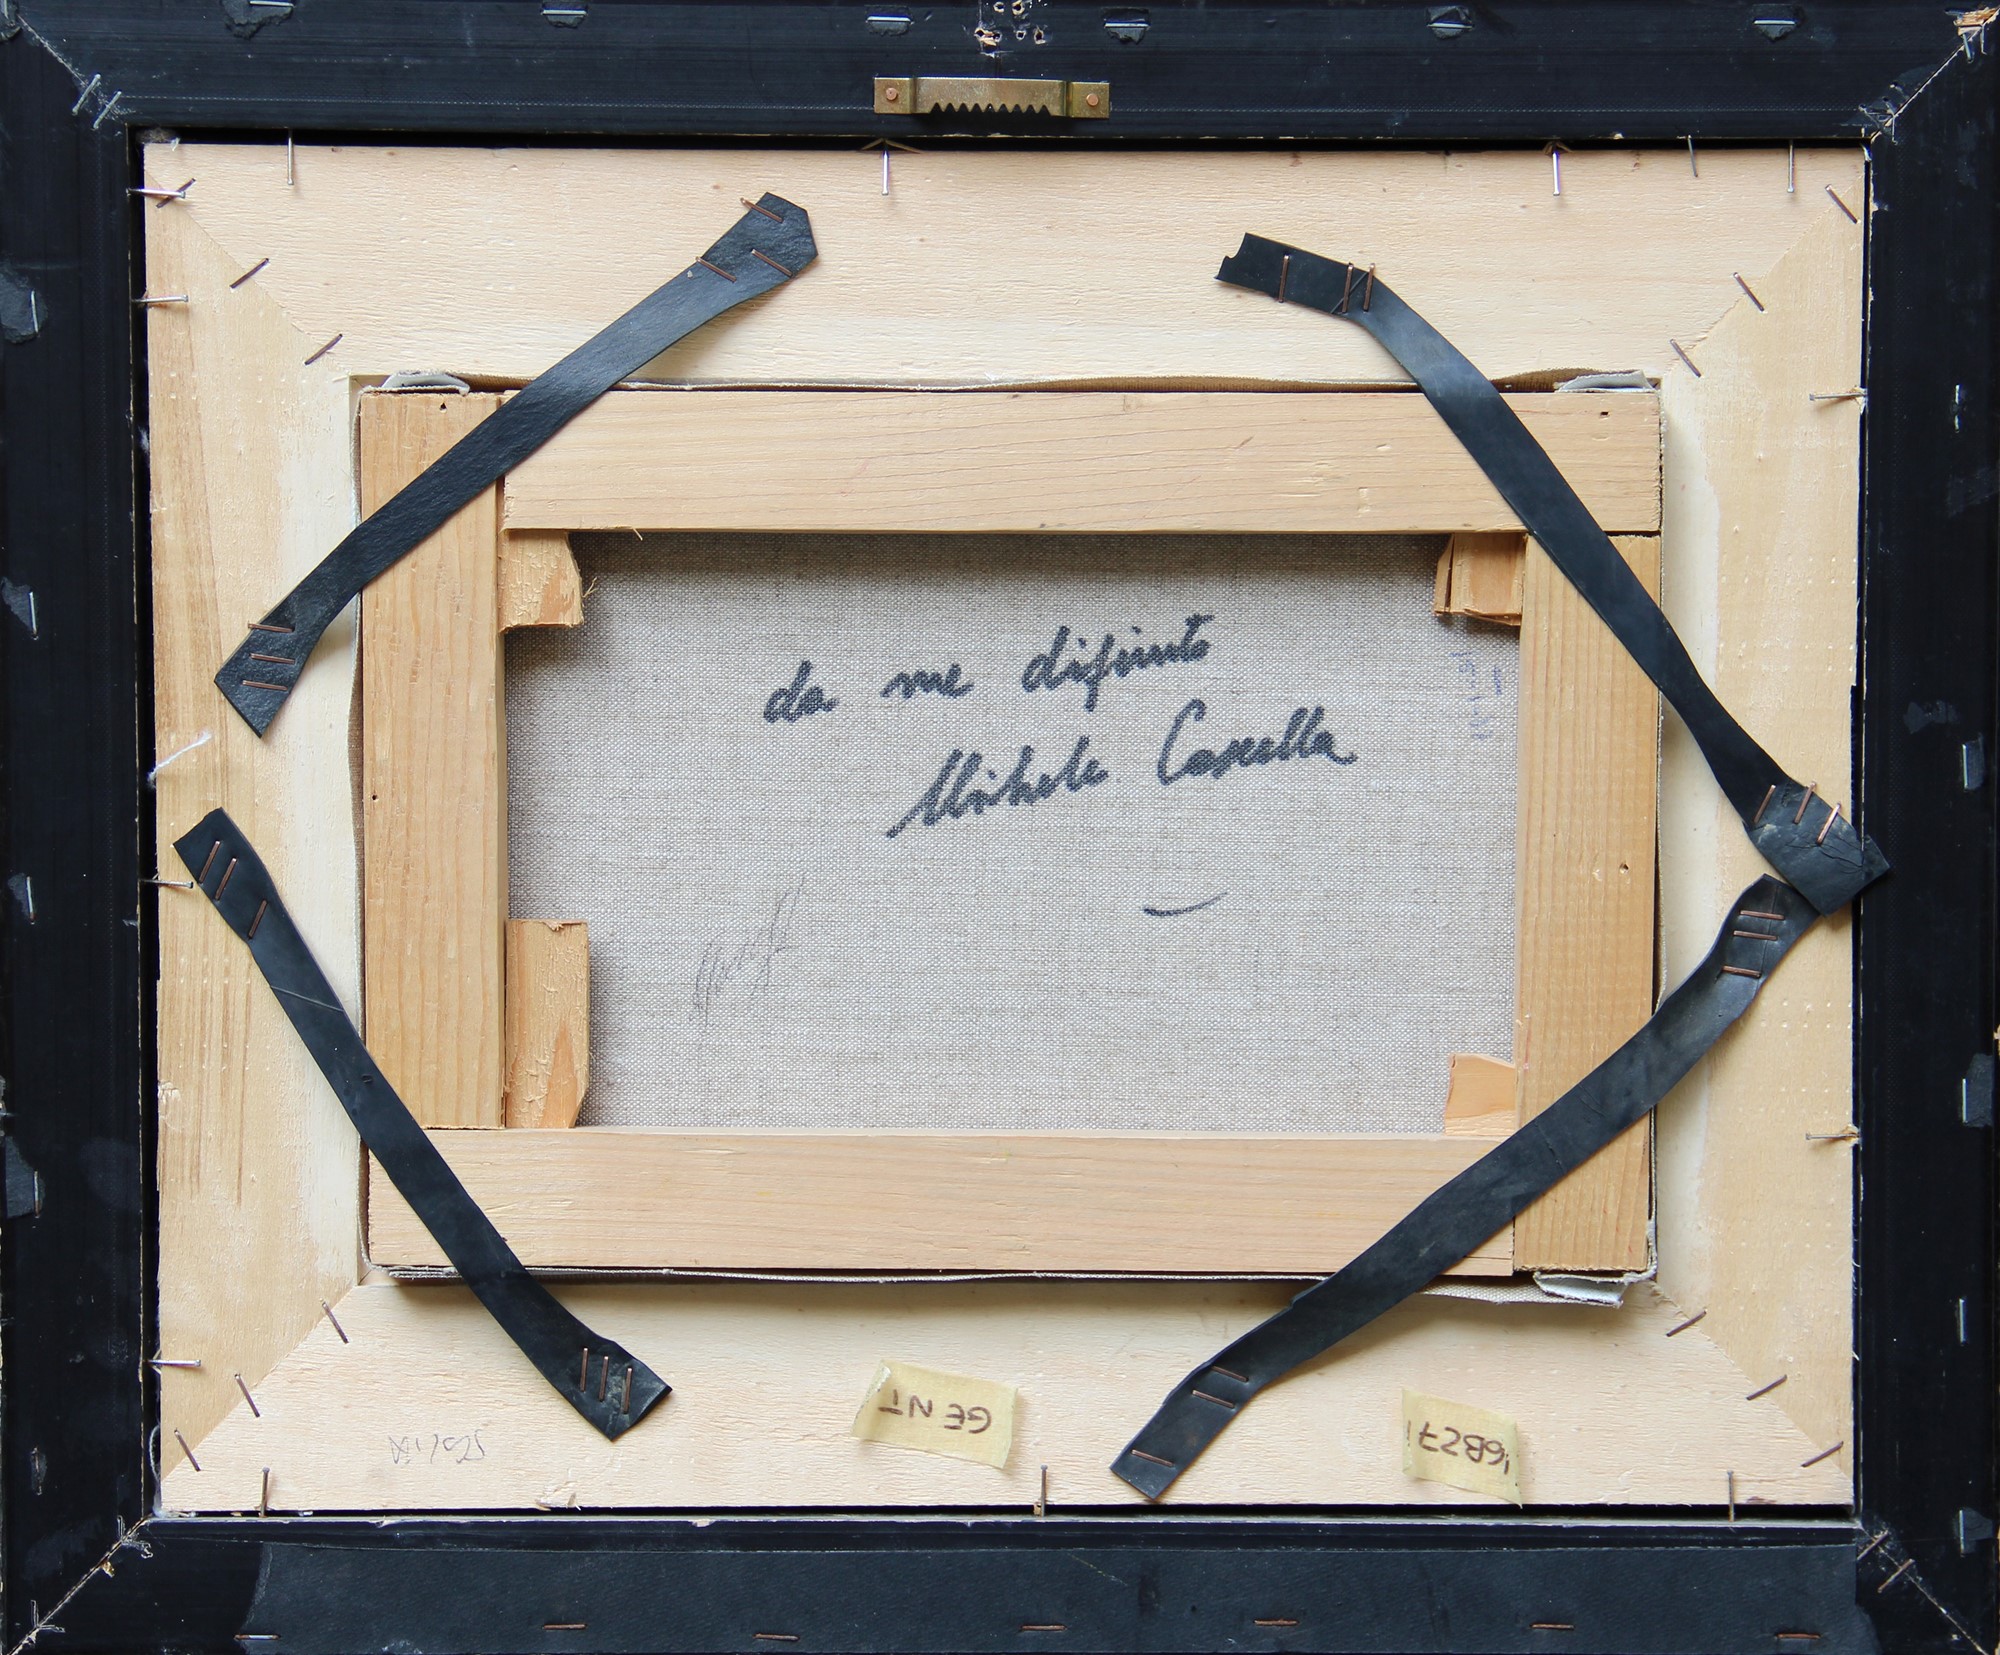 da me dipinto
Michele Cascella
GENT
16B271